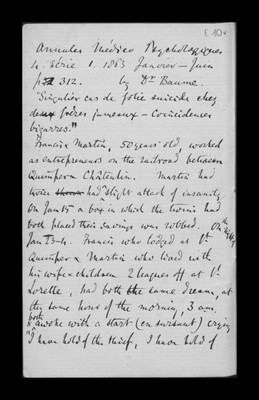 E 10v
Annales Médico Psychologiques
4. Série 1. 1863 Janvier – Juin
p. 312. by Dr Baume.
"Singulier cas de folie suicide chez
deux frères jumeaux – Coïncidences
bizarres."
Francis & Martin, 50 years old, worked
as entrepreneurs on the railroad between
Quimper & Châteulin. Martin had
twice had slight attack of insanity.
On Jan 15 a box in which the twins had
both placed their savings was robbed. On the night of
Jan 23-4. Francis who lodged at
Quimper & Martin who lived with
his wife & children 2 leagues off at
Lorette, had both the same dream, at
the same hour of the morning, 3 a.m.
& both awoke with a start (en sursaut) crying
"I have hold of the thief, I have hold of